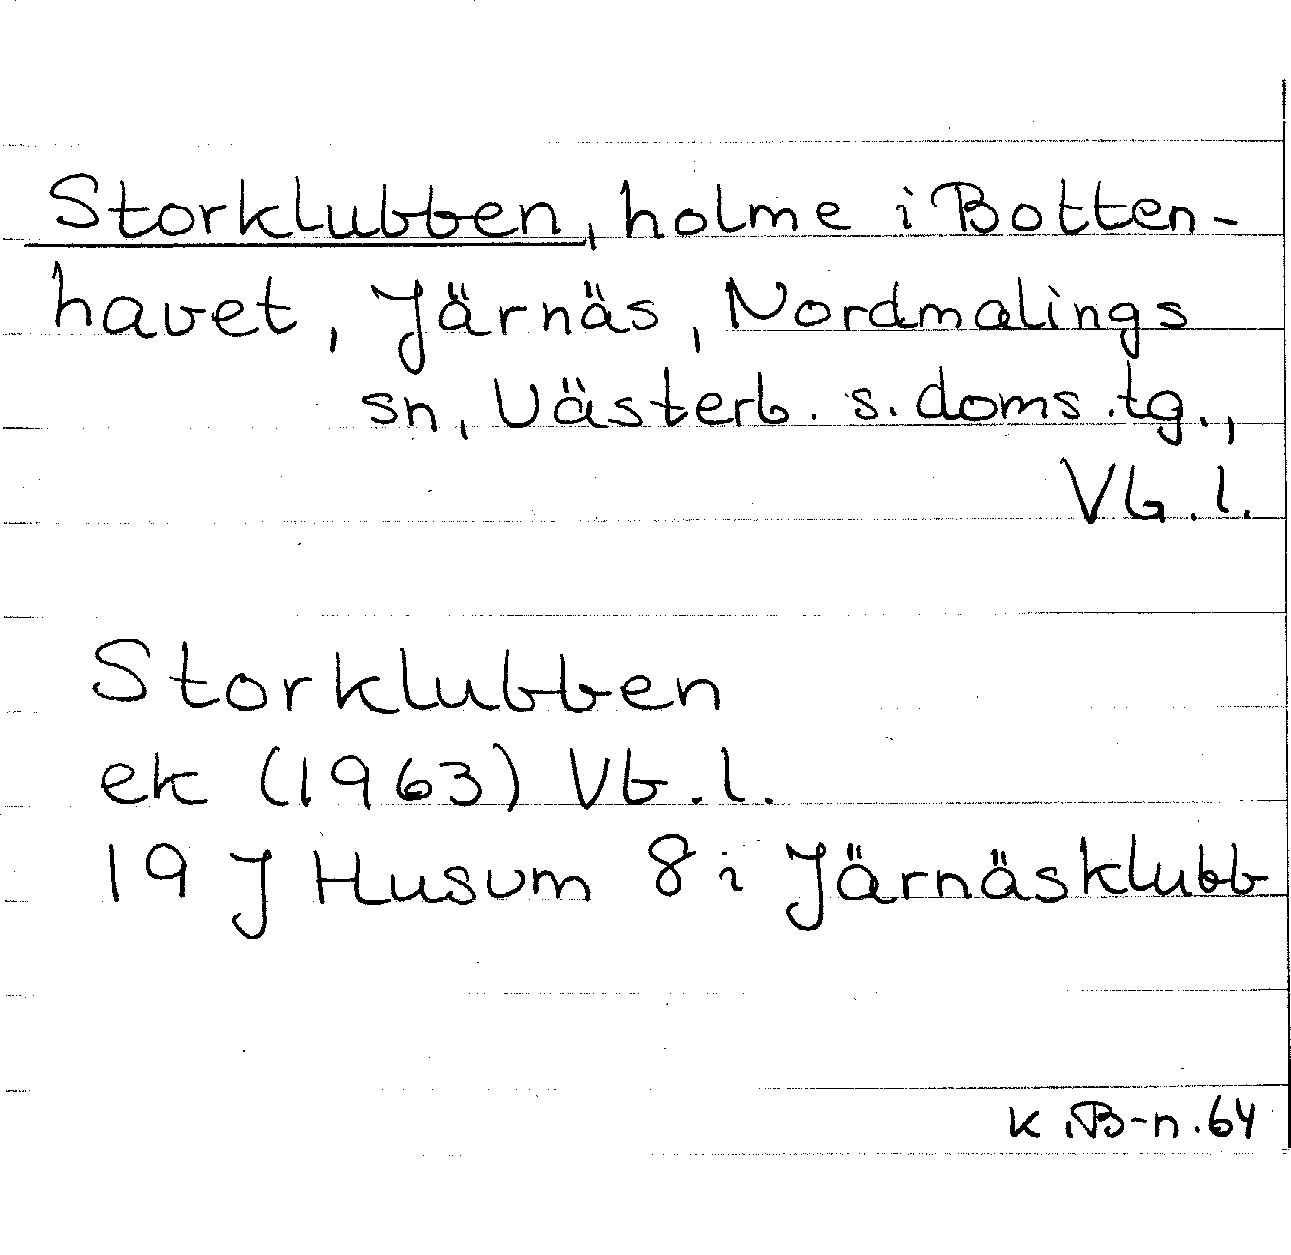 Storklubben, holme i Botten-
havet, Järnäs, Nordmalings
sn, Västerb. s. doms.tg.,
Vb.l.
Storklubben
ek (1963) Vb.l.
19 J Husum 8 i Järnäsklubb
K.B-n.64